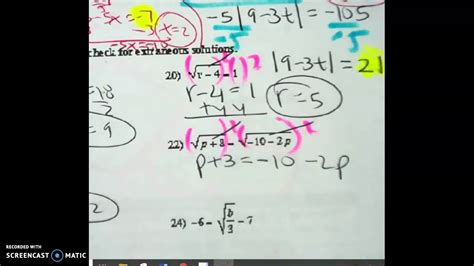 -5x = -7
-3
x=2
-5|9-3t| = -105
-5
-5
check for extraneous solutions.
20) √r-4 = 1
|9-3t| = 21
r-4=1
+4 4
r=5
= 9
22) √p+3 = √-10-2p
p+3 = -10 -2p
2
24) -6 = √b/3 - 7
RECORDED WITH
SCREENCAST MATIC